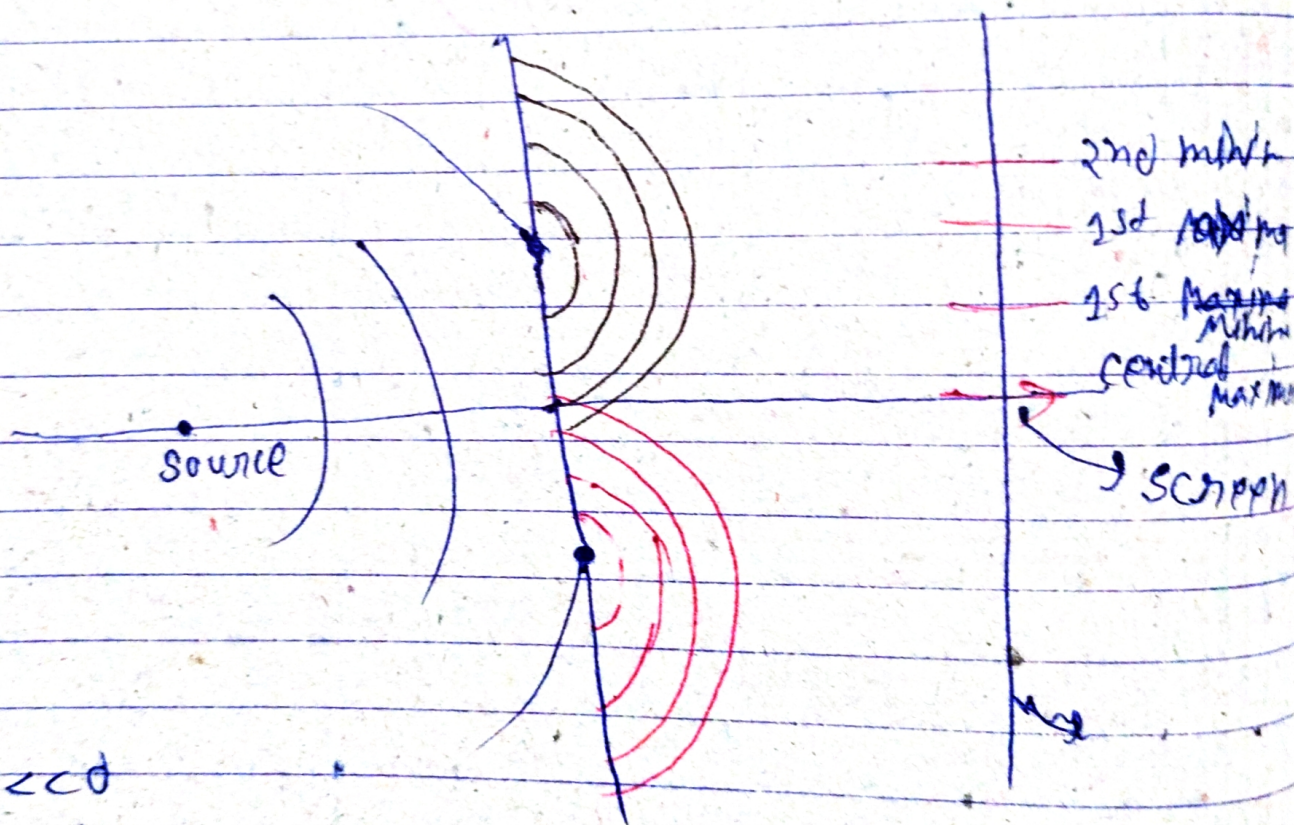 2nd minim
1st
1st
Minim
central
Maxim
source
screen
<<d